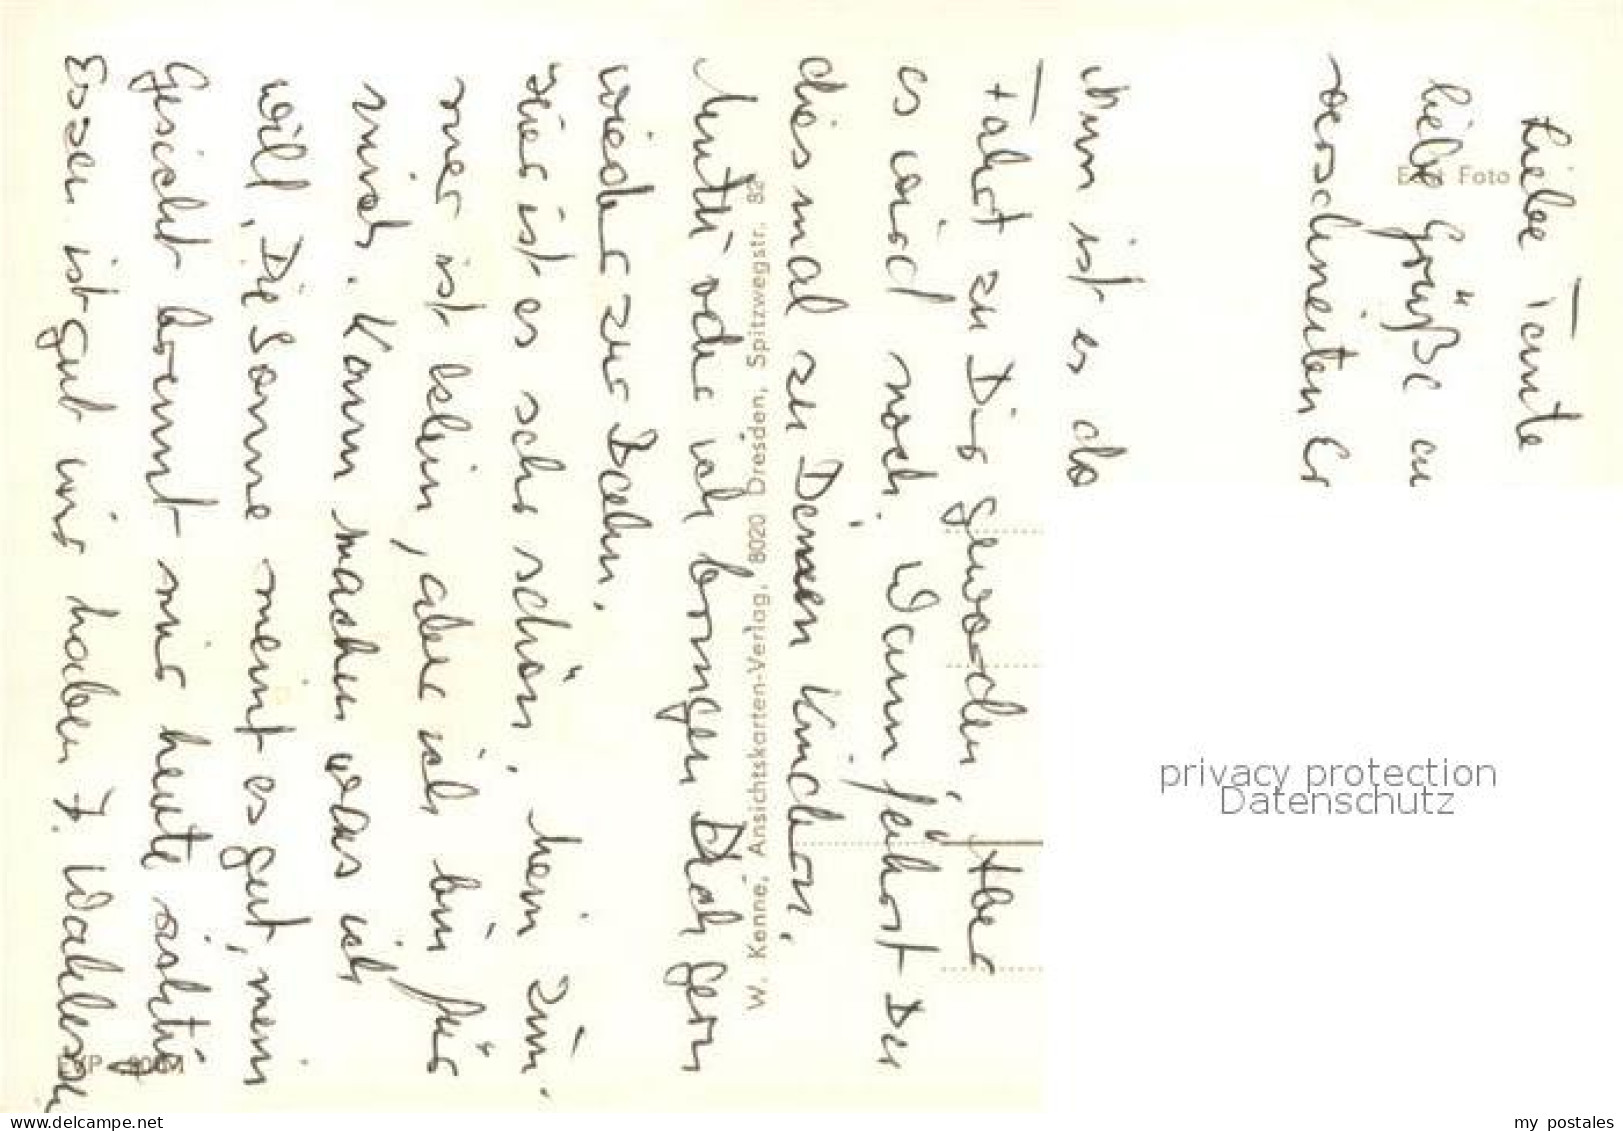 Liebe Tante
liebe Grüße au
verschneiten Er
Nun ist es do
Fahrt zu Dir geworden, Aber
es wird noch. Wann fährst Du
diesmal zu Deinen Kindern,
Mutti oder ich bringen Dich gern
wieder zur Bahn.
Hier ist es sehr schön, mein Zim-
mer ist klein, aber ich bin für
mich. Kann machen was ich
will. Die Sonne meint es gut, mein
Gesicht brennt mir heute richtig
Essen ist gut wir haben 7. Wahlessen
Echt Foto
W. Kenne, Ansichtskarten-Verlag, 8020 Dresden, Spitzwegstr. 82
privacy protection
Datenschutz
delcampe.net
my_postales